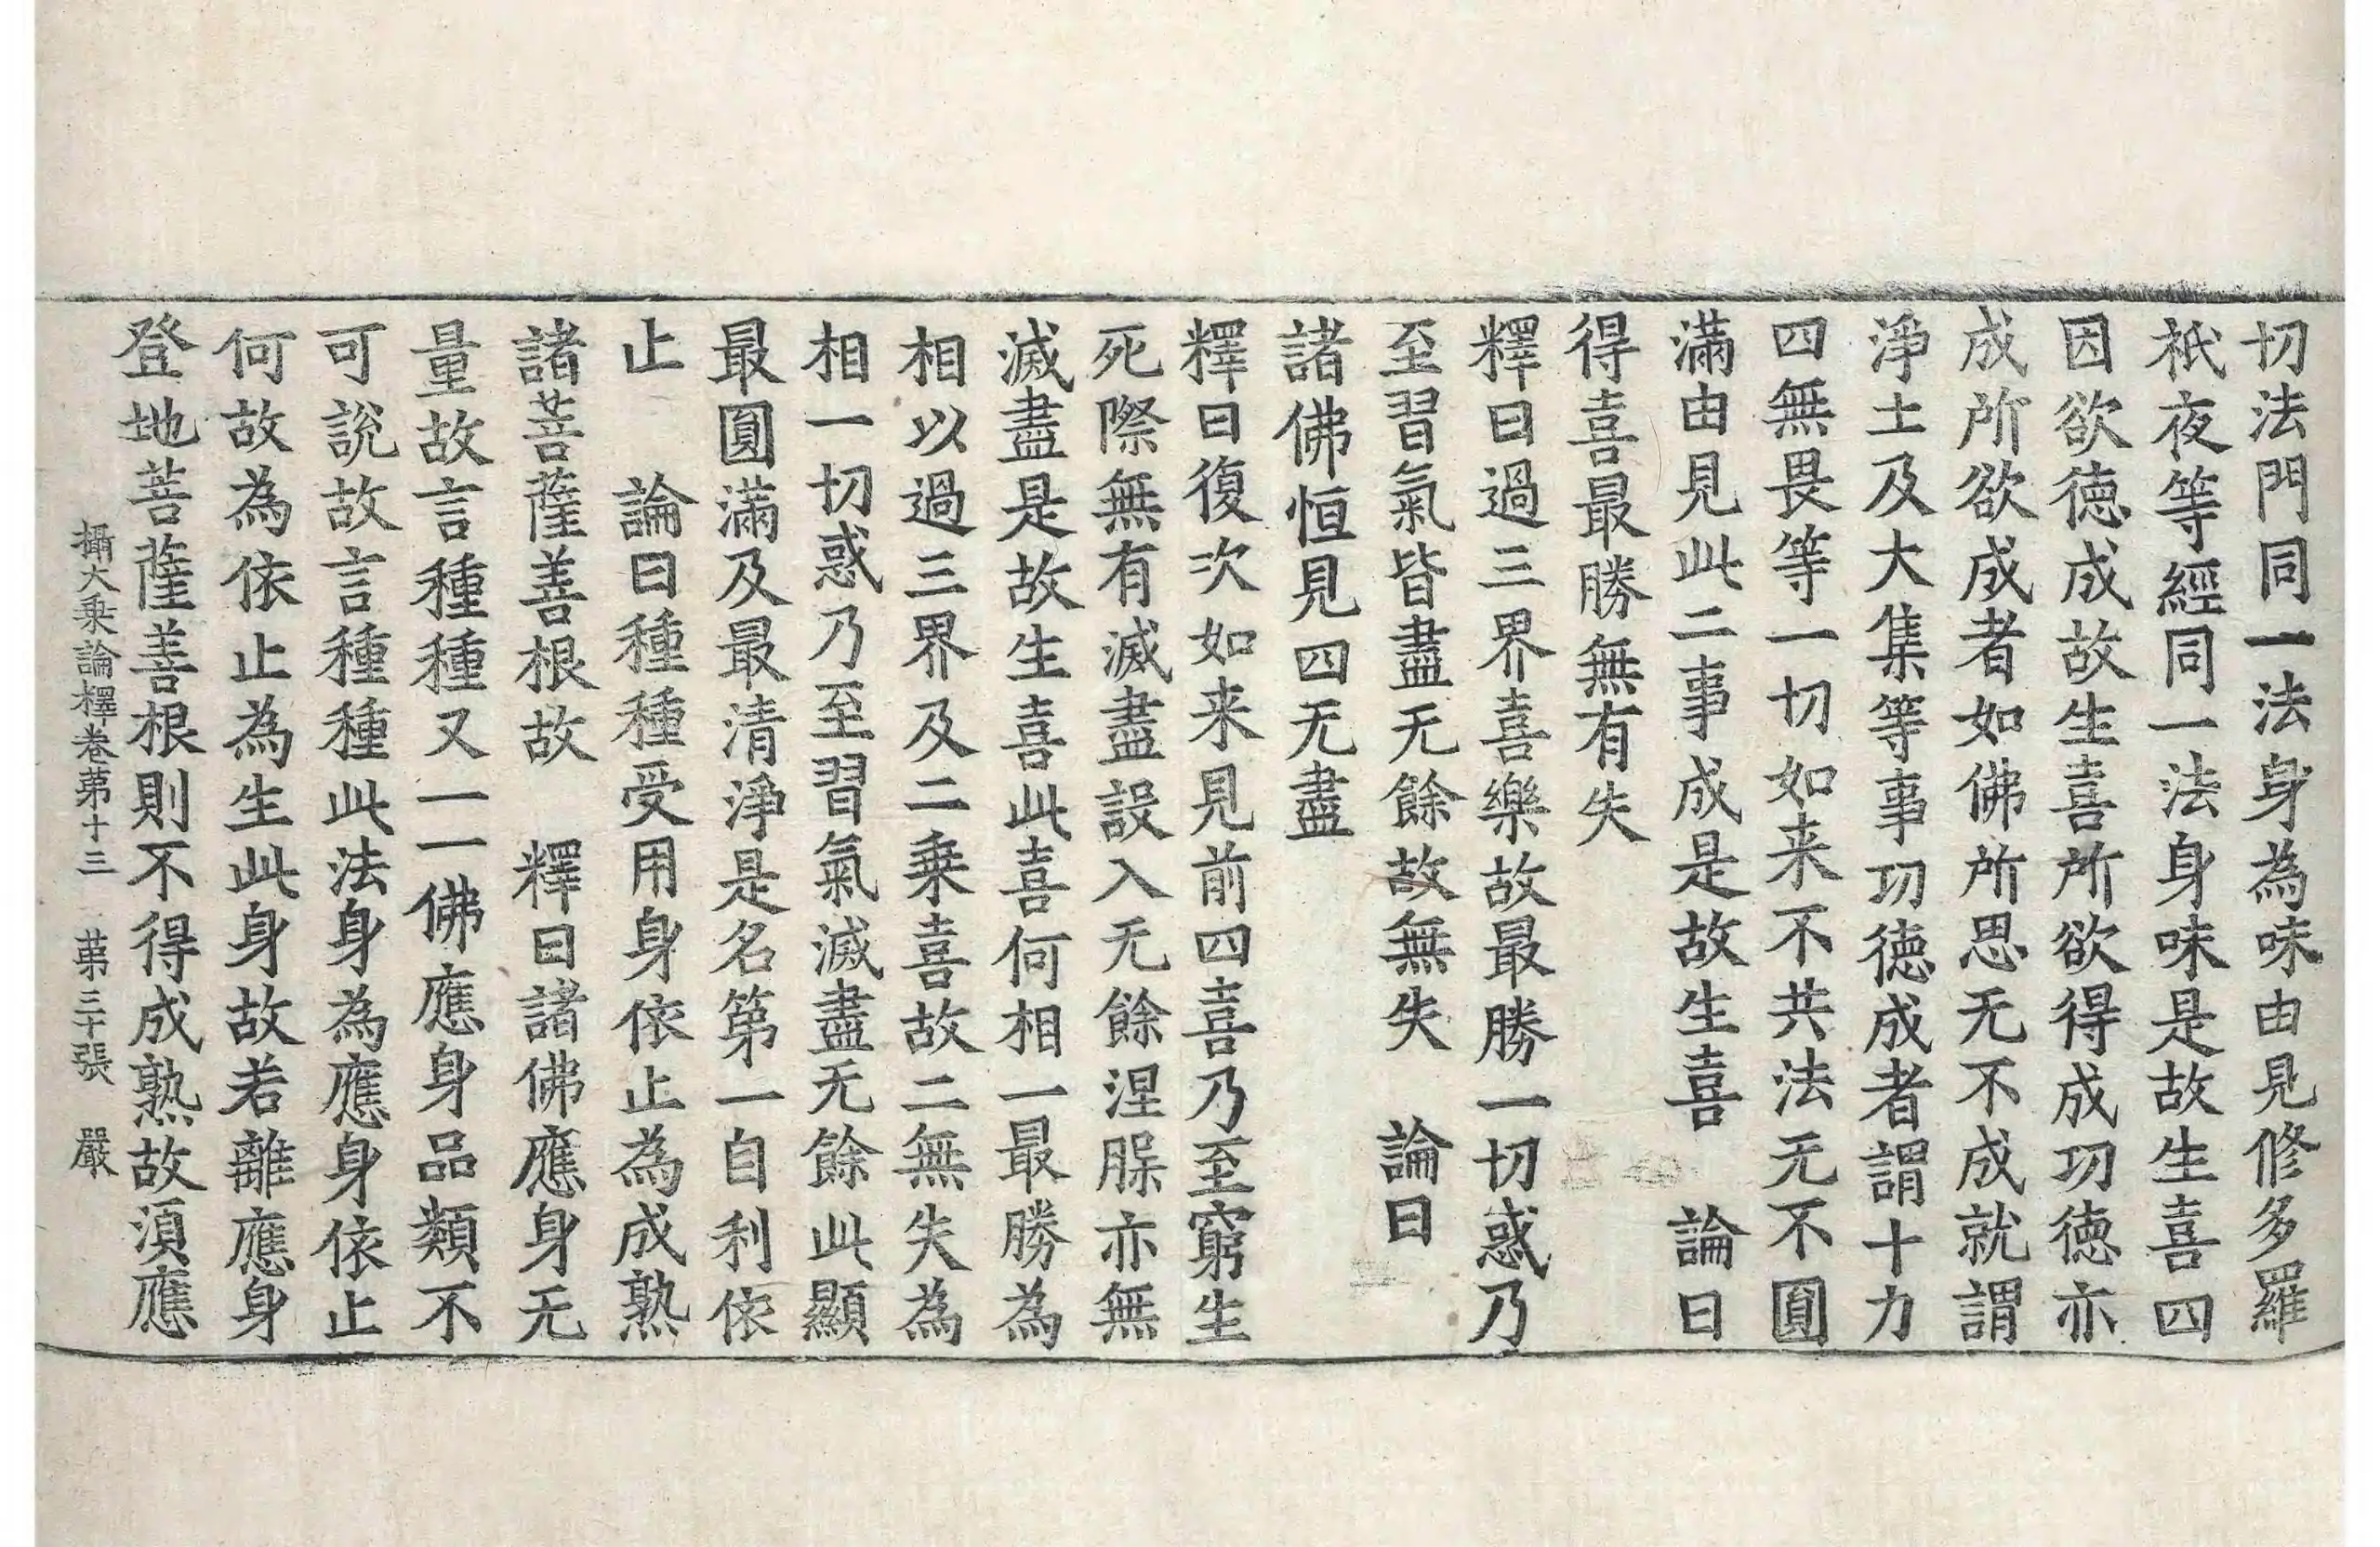 切法門同一法身為味由見修多羅
祇夜等經同一法身味是故生喜四
因欲德成故生喜所欲得成功德亦
成所欲成者如佛所思无不成就謂
淨土及大集等事功德成者謂十力
四無畏等一切如来不共法无不圓
滿由見此二事成是故生喜　論曰
得喜最勝無有失
釋曰過三界喜樂故最勝一切惑乃
至習氣皆盡无餘故無失　論曰
諸佛恒見四无盡
釋曰復次如来見前四喜乃至窮生
死際無有滅盡設入无餘涅槃亦無
滅盡是故生喜此喜何相一最勝為
相以過三界及二乗喜故二無失為
相一切惑乃至習氣滅盡无餘此顯
最圓滿及最清淨是名第一自利依
止　論曰種種受用身依止為成熟
諸菩薩善根故　釋曰諸佛應身无
量故言種種又一一佛應身品類不
可說故言種種此法身為應身依止
何故為依止為生此身故若離應身
登地菩薩善根則不得成熟故湏應
攝大乗論釋卷苐十三　苐三十張　嚴